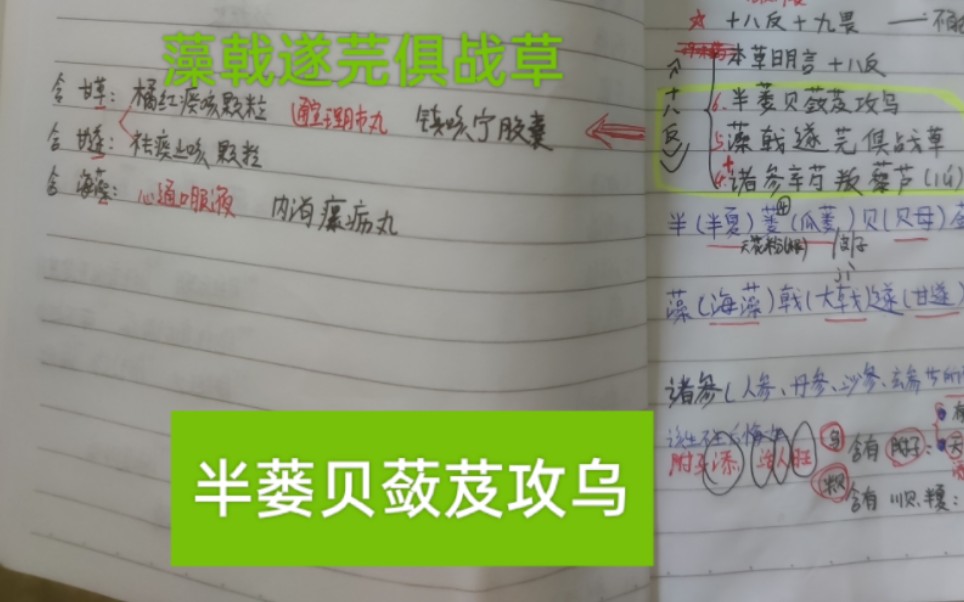 藻戟遂芫俱战草
含甘草：橘红痰咳颗粒 通宣理肺丸 镇咳宁胶囊
含甘遂：祛痰止咳颗粒
含海藻：心通口服液 内消瘰疬丸
半蒌贝蔹芨攻乌
十八反十九畏
本草明言十八反
十八反
6.半蒌贝蔹芨攻乌
5.藻戟遂芫俱战草
诸参辛芍叛藜芦
半(半夏)蒌(瓜蒌)贝(贝母)
天花粉
藻(海藻)戟(大戟)遂(甘遂)
诸参(人参、丹参、沙参、玄参
含有附子：
含有川贝、半夏：